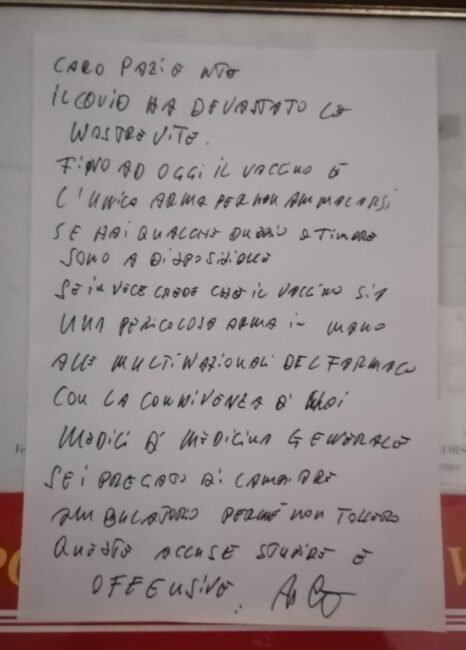 CARO PAZIENTE
IL COVID HA DEVASTATO LE
NOSTRE VITE.
FINO AD OGGI IL VACCINO È
L'UNICA ARMA PER NON AMMALARSI
SE HAI QUALCHE DUBBIO O TIMORE
SONO A DISPOSIZIONE
SE INVECE CREDE CHE IL VACCINO SIA
UNA PERICOLOSA ARMA IN MANO
ALLE MULTINAZIONALI DEL FARMACO
CON LA CONNIVENZA DI NOI
MEDICI DI MEDICINA GENERALE
SEI PREGATO DI CAMBIARE
AMBULATORIO PERCHÉ NON TOLLERO
QUESTE ACCUSE STUPIDE E
OFFENSIVE.